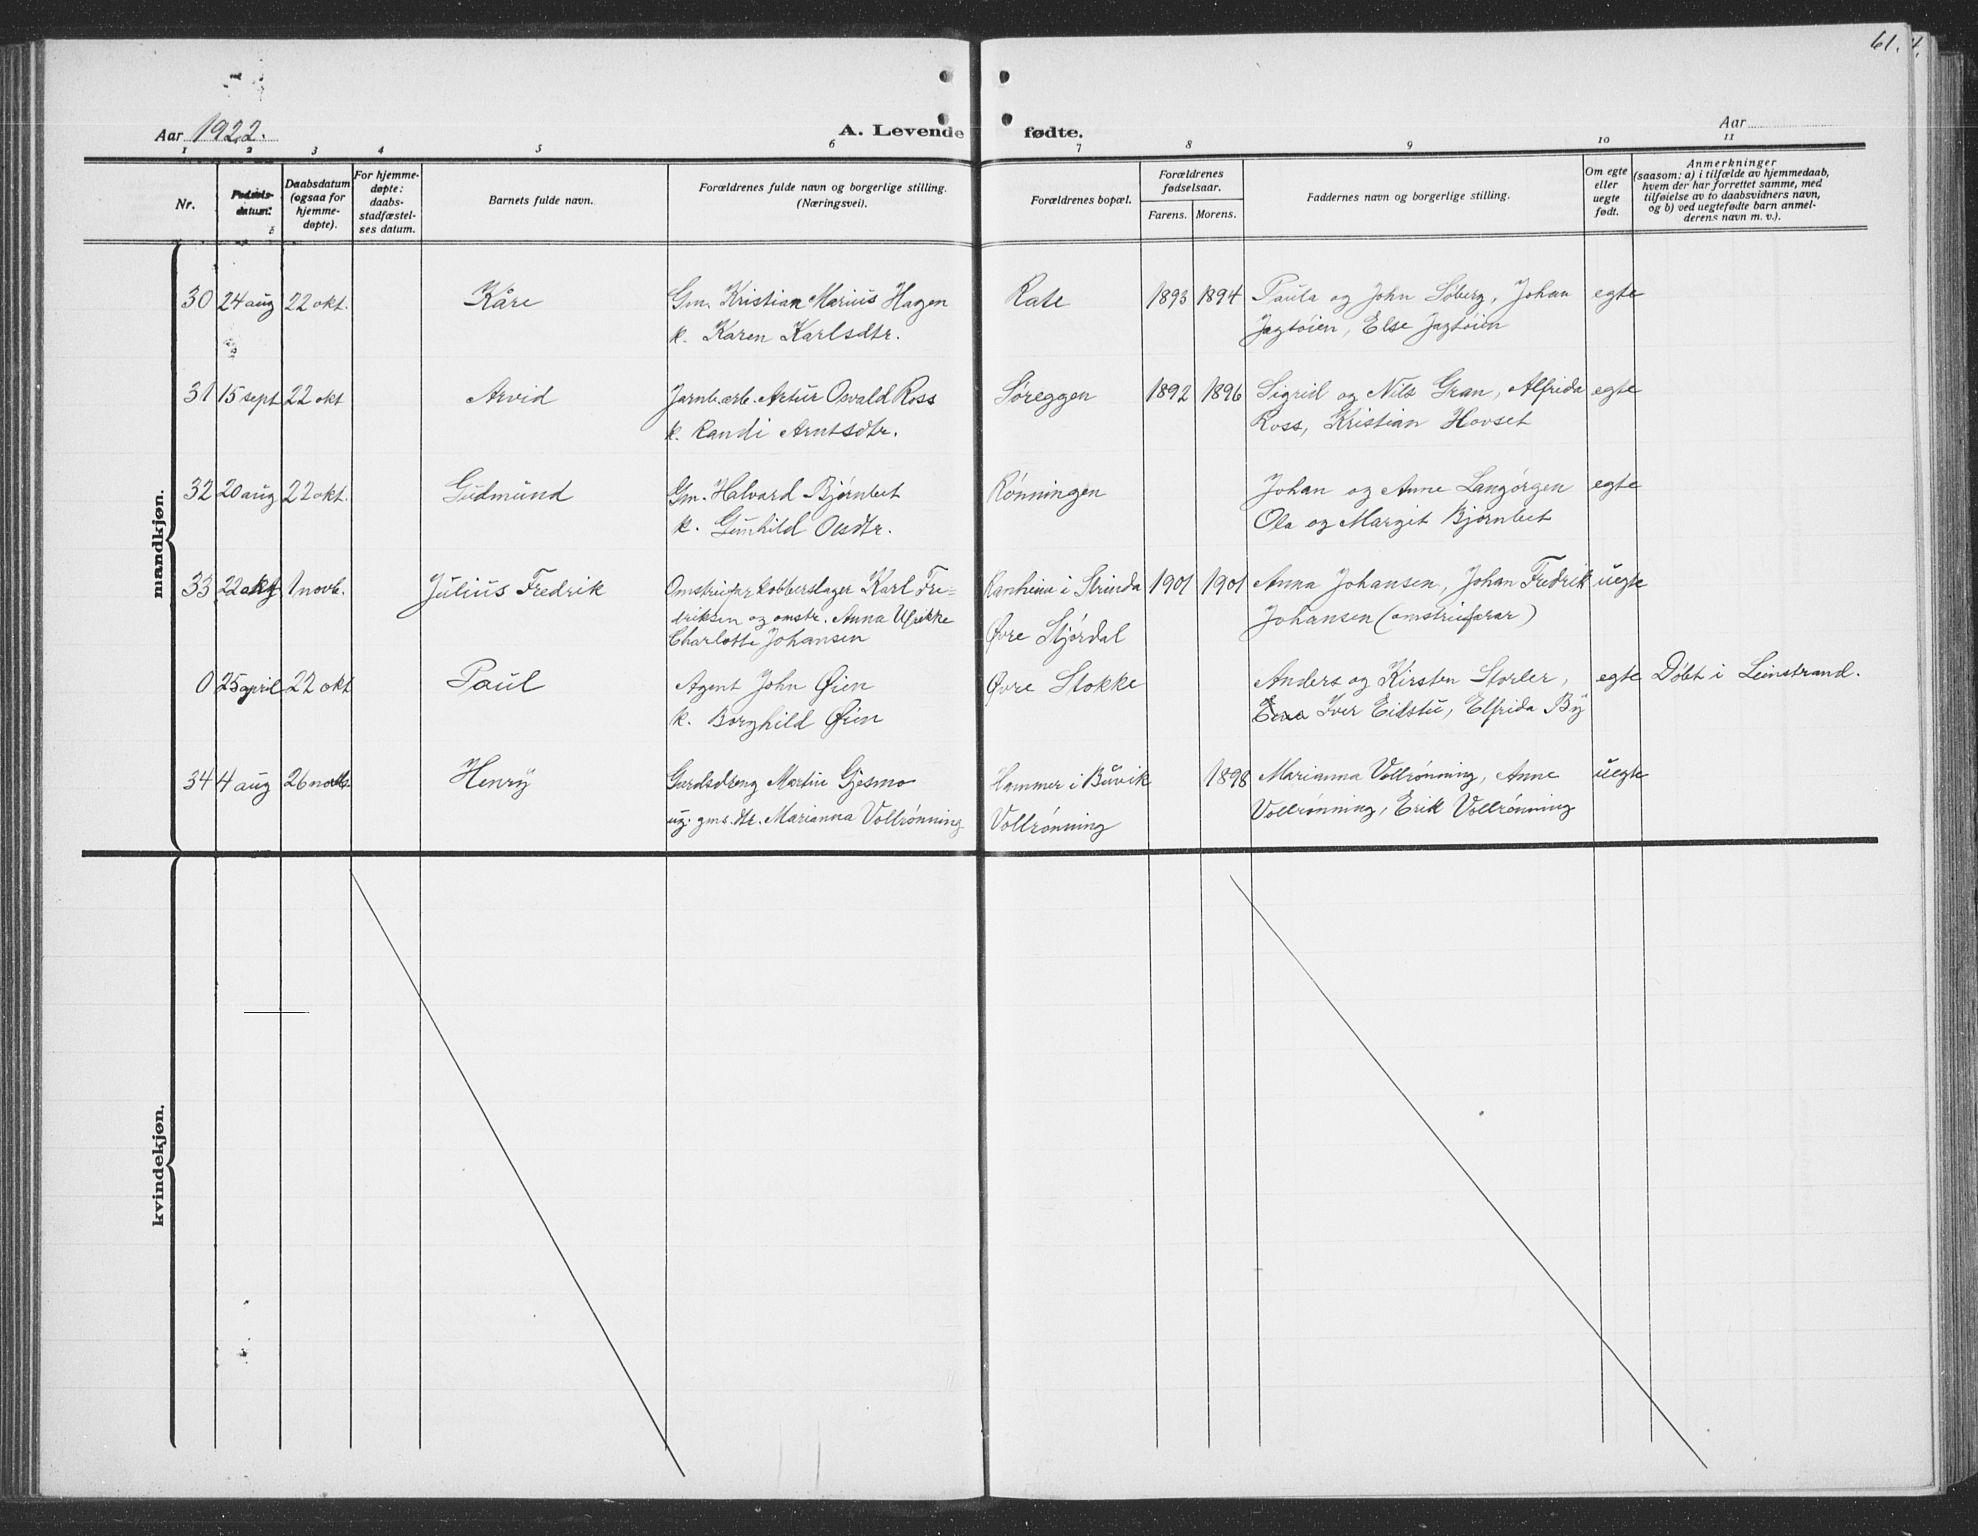 61.
Aar 1922.
A. Levende fødte.
Aar
1 2 3 4 5 6 7 8 9 10 11
Nr.
Fødsels-
datum.
Daabsdatum
(ogsaa for
hjemme-
døpte).
For hjemme-
døpte:
daabs-
stadfæstel-
ses datum.
Barnets fulde navn.
Forældrenes fulde navn og borgerlige stilling.
(Næringsvei).
Forældrenes bopæl.
Forældrenes
fødselsaar.
Farens. Morens.
Faddernes navn og borgerlige stilling.
Om egte
eller
uegte
født.
Anmerkninger
(saasom: a) i tilfælde av hjemmedaab,
hvem der har forrettet samme, med
tilføielse av to daabsvidners navn,
og b) ved uegtefødte barn anmel-
derens navn m. v.).
mandkjøn.
30 24 aug 22 okt. Kåre Gm. Kristian Marius Hagen Rate 1893 1894 Paula og John Søberg, Johan egte
k. Karen Karlsdtr. Jagtøien, Else Jagtøien
31 15 sept 22 okt Arvid Jarnb.arb. Artur Osvald Ross Søreggen 1892 1896 Sigrid og Nils Gran, Alfrida egte
k. Randi Arntsdtr. Ross, Kristian Hovset
32 20 aug 22 okt. Gudmund Gm. Halvard Bjørnbet Rønningen Johan og Anne Langørgen egte
k. Gunhild Olsdtr. Ola og Margit Bjørnbet
33 22 okt 1 novb. Julius Fredrik Omstreifar kobberslager Karl Fre- Ranheim i Strinda 1901 1901 Anna Johansen, Johan Fredrik uegte
driksen og omstr. Anna Ulrikke Øvre Stjørdal Johansen (omstreifarar)
Charlotte Johansen
0 25 april 22 okt Paul Agent John Øien Øvre Stokke Anders og Kirsten Storler, egte Døbt i Leinstrand.
k. Borghild Øien Iver Eidstu, Elfrida By
34 4 aug 26 novb. Henry Gardsdreng Martin Gjesmo Hammer i Buvik 1898 Marianna Vollrønning, Anne uegte
ug. gms. dtr. Marianna Vollrønning Vollrønning Vollrønning, Erik Vollrønning
kvindekjøn.